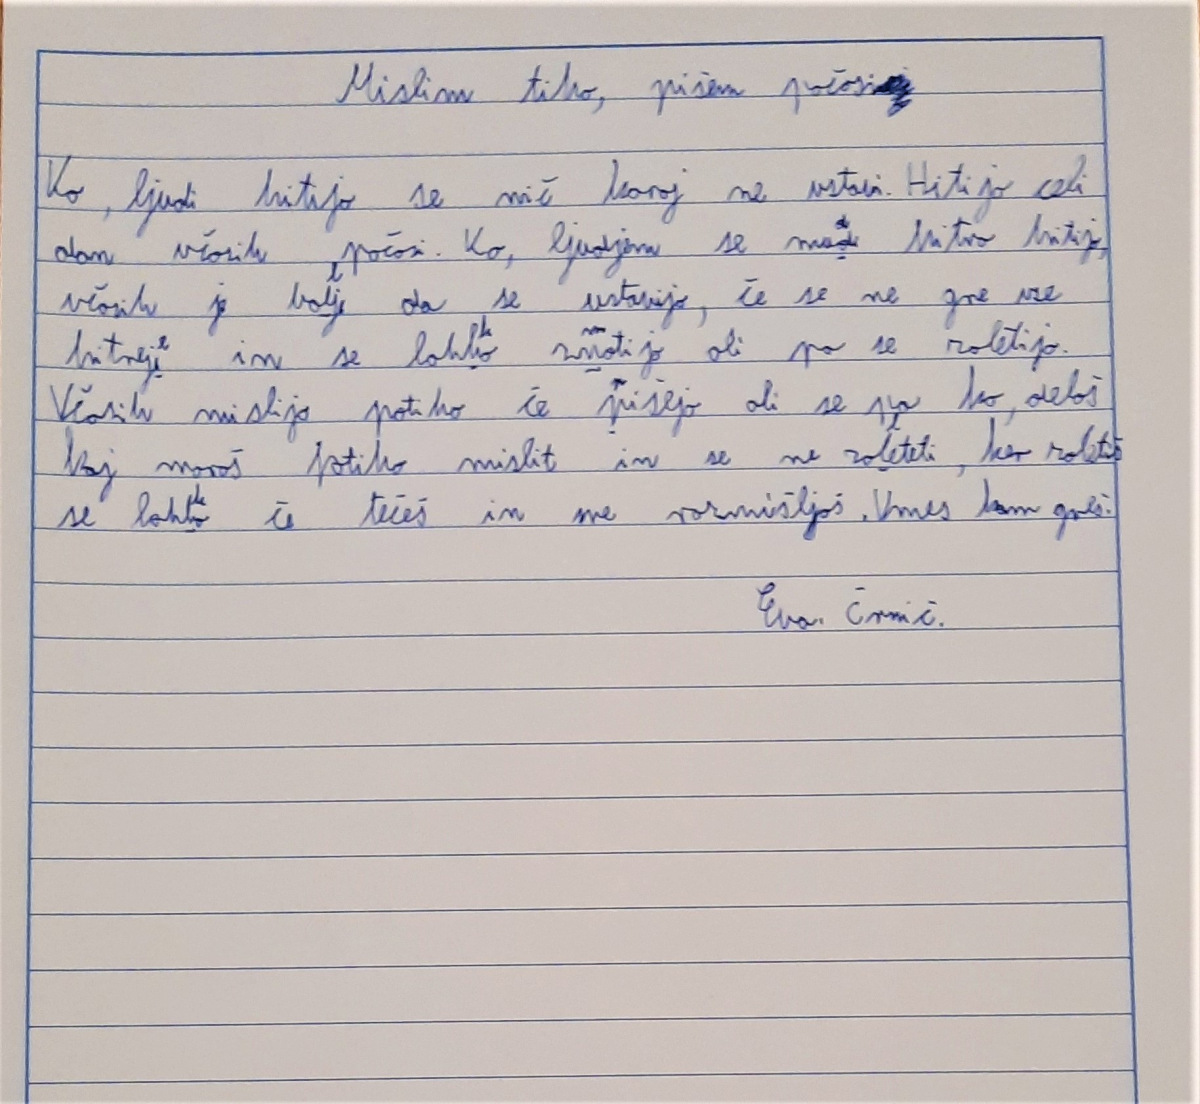 Mislim tiho, pišem počasi
Ko, ljudi hitijo se nič koraj ne ustavi. Hitijo celi
dan včasih počasi. Ko, ljudjem se mudi hitro hitijo,
včasih je bolje da se ustavijo, če se ne gre vse
hitreje in se lahko zmotijo ali pa se zaletijo.
Včasih mislijo potiho če pišejo ali se pa ko, delaš
kaj moraš potiho mislit in se ne zaleteti, ker zaletiš
se lahko če tečeš in ne razmišljaš. Vmes kam greš.
Eva. Črnič.